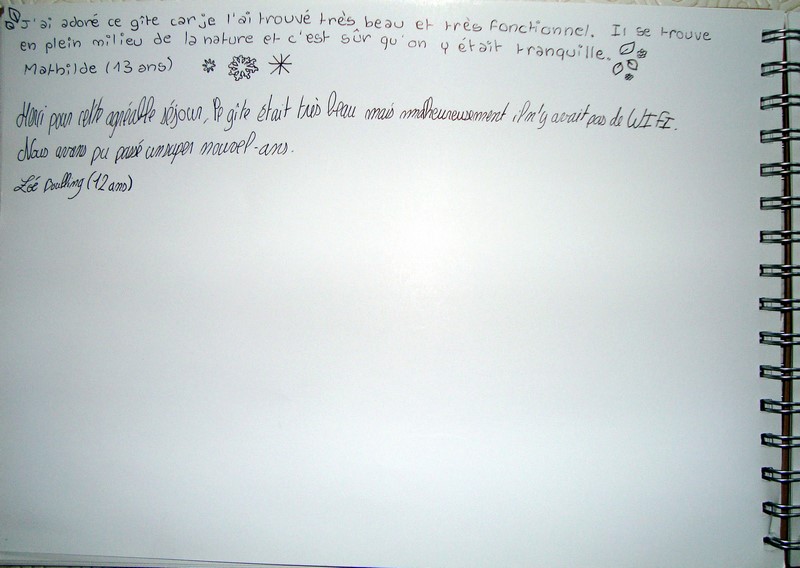 J'ai adoré ce gîte car je l'ai trouvé très beau et très fonctionnel. Il se trouve
en plein milieu de la nature et c'est sûr qu'on y était tranquille.
Mathilde (13 ans)
Merci pour cette agréable séjour, le gîte était très beau mais malheureusement il n'y avait pas de WIFI.
Nous avons pu passé un super nouvel-ans.
(12 ans)